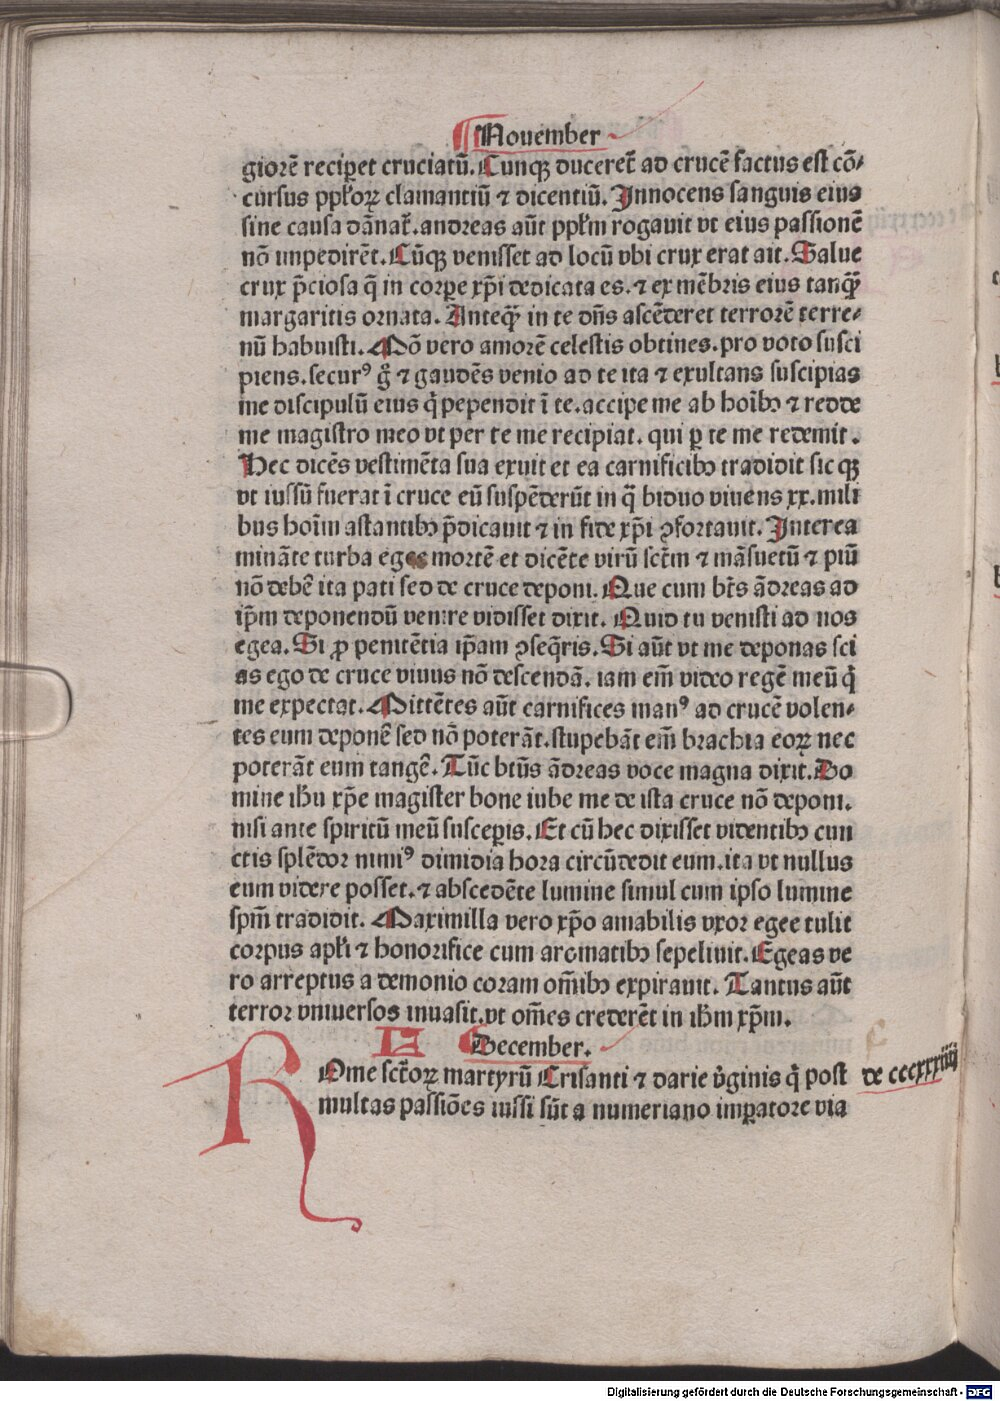 November
giorē recip̱et cruciatū. Cunqꝫ duceret᷑ ad crucē factus est cō⸗
cursus ppɫoꝝ clamantiū ⁊ dicentiū. Innocens sanguis eius
sine causa dānat᷑. andreas aūt ppɫm rogauit vt eius passionē
nō impedirēt. Cūqꝫ venisset ad locū vbi crux erat ait. Salue
crux p̄ciosa q̄ in corꝑe xp̄i dedicata es. ⁊ ex mēbris eius tanqꝫ̄
margaritis ornata. Anteqꝫ̄ in te dn̄s ascēderet terrorē terre⸗
nū habuisti. Mō vero amorē celestis obtines. pro voto susci
piens. securꝰ g̊ ⁊ gaudēs venio ad te ita ⁊ exultans suscipias
me discipulū eius q̇ pependit ī te. accipe me ab hoīb⁹ ⁊ redde
me magistro meo vt per te me recipiat. qui ꝑ te me redemit.
Hec dicēs vestimēta sua exuit et ea carnificib⁹ tradidit sic qꝫ
vt iussū fuerat ī cruce eū suspēderūt in q̄ biduo viuens xx. mili
bus hoīm astantib⁹ p̄dicauit ⁊ in fide xp̄i ꝯfortauit. Interea
mināte turba egee mortē et dicēte virū sct̄m ⁊ māsuetū ⁊ piū
nō debē ita pati sed de cruce deponi. Que cum bt̄s ādreas ad
ip̄m deponendū venire vidisset dixit. Quid tu venisti ad nos
egea. Si ꝓ penitētia ip̄am ꝯseq̄ris. Si aūt vt me deponas sci
as ego de cruce viuus nō descendā. iam em̄ video regē meū q̇
me expectat. Mittētes aūt carnifices manꝰ ad crucē volen⸗
tes eum deponē sed nō poterāt. stupebāt em̄ brachia eoꝝ nec
poterāt eum tangē. Tūc btūs ādreas voce magna dixit. Do
mine ihū xp̄e magister bone iube me de ista cruce nō deponi.
nisi ante spiritū meū susceꝑis. Et cū hec dixisset videntib⁹ cun
ctis splēdor nimiꝰ dimidia hora circūdedit eum. ita vt nullus
eum videre posset. ⁊ abscedēte lumine simul cum ipso lumine
spm̄ tradidit. Maximilla vero xp̄o amabilis vxor egee tulit
corpus apɫi ⁊ honorifice cum aromatib⁹ sepeliuit. Egeas ve
ro arreptus a demonio coram om̄ib⁹ expirauit. Tantus aūt
terror vniuersos inuasit. vt om̄es crederēt in ihm̄ xp̄m.
December.
ROme sct̄oꝝ martyrū Crisanti ⁊ darie v̇ginis q̇ post
de cccxxxiiij
multas passiōes iussi sūt a numeriano imꝑatore via
Digitalisierung gefördert durch die Deutsche Forschungsgemeinschaft - DFG